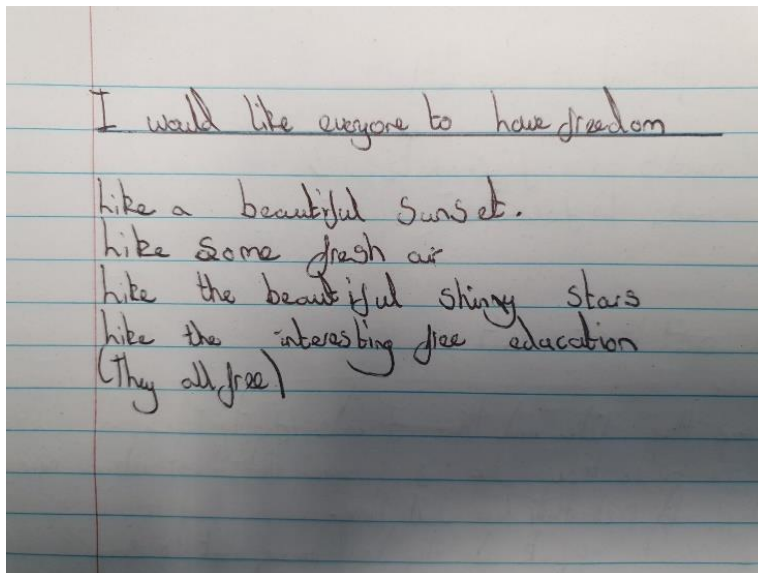 I would like everyone to have freedom
Like a beautiful sunset.
Like some fresh air
Like the beautiful shinny stars
Like the interesting free education
(They all free)